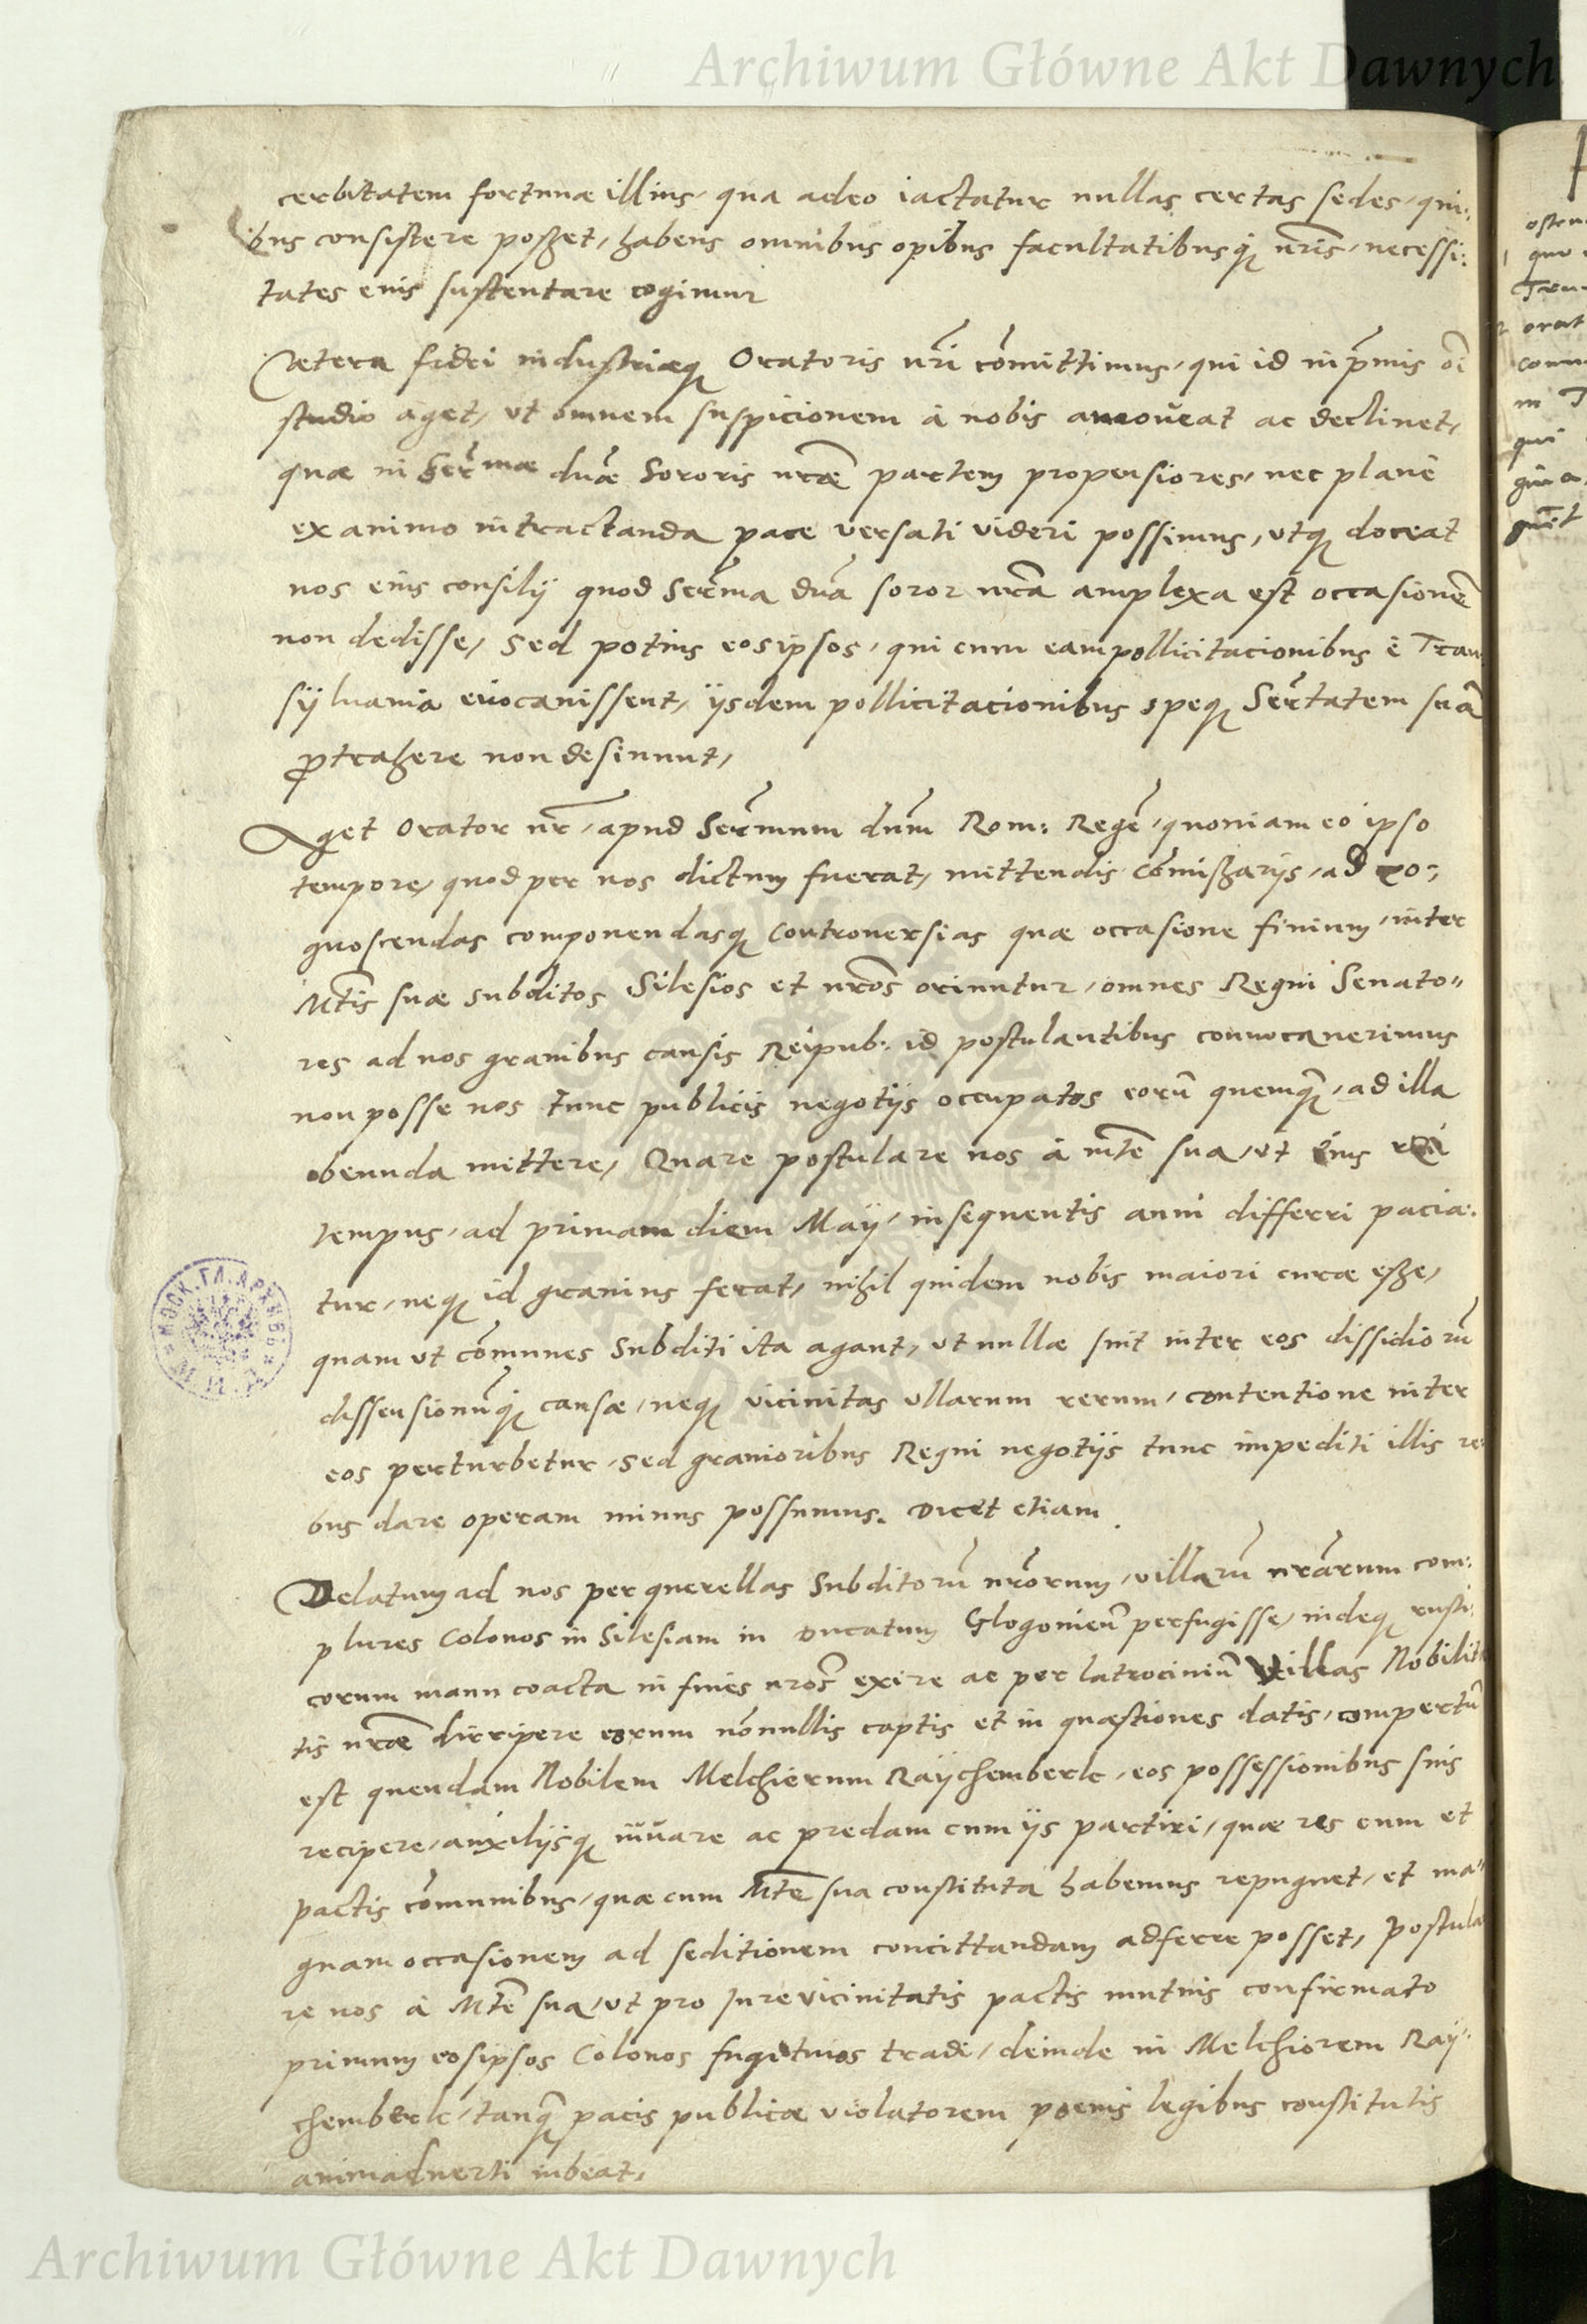 Archiwum Główne Akt Dawnych
cerbitatem fortunæ illius, qua adeo iactatur nullas certas sedes, qui:
bus consistere poßet, habens omnibus opibus facultatibusq̨ nr̃is, necessi:
tates eius sustentare cogimur
Cætera fidei industriæq̨ Oratoris nr̃i cõmittimus, qui id inp̃mis oĩ
studio aget, ut omnem suspicionem à nobis amoueat ac declinet,
quæ in Ser̃mæ dnæ̃ Sororis nr̃æ partem propensiores, nec planè
ex animo in tractanda pace versati videri possimus, utq̨ doceat
nos eius consilij quod Ser̃ma dnã soror nr̃a amplexa est occasionẽ
non dedisse, sed potius eos ipsos, qui cum eam pollicitacionibus è Tran
syluania euocauissent, ijsdem pollicitacionibus speq̨ Ser̃tatem suã
ꝓtrahere non desinunt,
Aget Orator nr̃, apud Ser̃mum dnm̃ Rom: Regẽ, quoniam eo ipso
tempore, quod per nos dictum fuerat, mittendis Cõmißarijs, ad co:
gnoscendas componendasq̨ controuersias quæ occasione finium, inter
Mt̃is suæ subditos Silesios et nr̃os oriuntur, omnes Regni Senato"
res ad nos grauibus causis Reipub: id postulantibus conuocauerimus
non posse nos tunc publicis negotijs occupatos eorũ quemq̃, ad illa
obeunda mittere, Quare postulare nos à mt̃e sua, ut eius rei
tempus, ad primam diem Maij, insequentis anni differri pacia:
tur, neq̨ id grauius ferat, nihil quidem nobis maiori curæ eße,
quam ut cõmunes subditi ita agant, ut nullæ sint inter eos dissidiorũ
dissensionũq̨ causæ, neq̨ vicinitas ullarum rerum, contentione inter
eos perturbetur, sed grauioribus Regni negotijs tunc impediti illis re
bus dare operam minus possumus. Dicet etiam
Delatum ad nos per querellas subditorũ nr̃orum, villarũ nr̃arum com:
plures Colonos in Silesiam in Ducatum Glogouieñ perfugisse, indeq̨ rusti:
corum manu coacta in fines nr̃os exire ac per latrociniũ villas Nobilita
tis nr̃æ dirripere eorum nõnullis captis et in quæstiones datis, compertũ
est quendam Nobilem Melchierum Raÿchemberk, eos possessionibus suis
recipere, auxilijsq̨ iuuare ac predam cum ijs partiri, quæ res cum et
pactis cõmunibus, quæ cum Mt̃e sua constituta habemus repugnet, et ma"
gnam occasionem ad seditionem concittandam adferre posset, postula
re nos à Mt̃e sua, ut pro Jure vicinitatis pactis mutuis confirmato
primum eos ipsos Colonos fugitiuos tradi, deinde in Melchiorem Raÿ"
chemberk, tanq̃ pacis publicæ violatorem poenis legibus constitutis
animaduerti iubeat,
Archiwum Główne Akt Dawnych